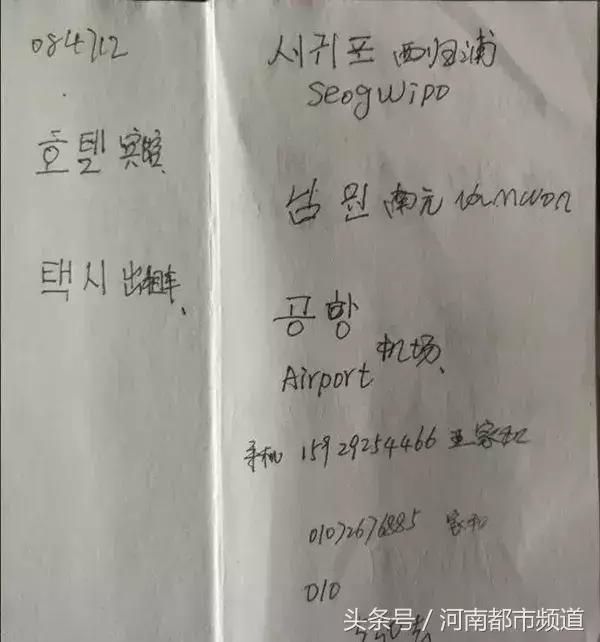 084712
호텔 宾馆
택시 出租车、
서귀포 西归浦
seogwipo
남원 南元 Namwon
공항
Airport 机场、
手机 15929254466 王家和
01072676885 家和
010
头条号 / 河南都市频道